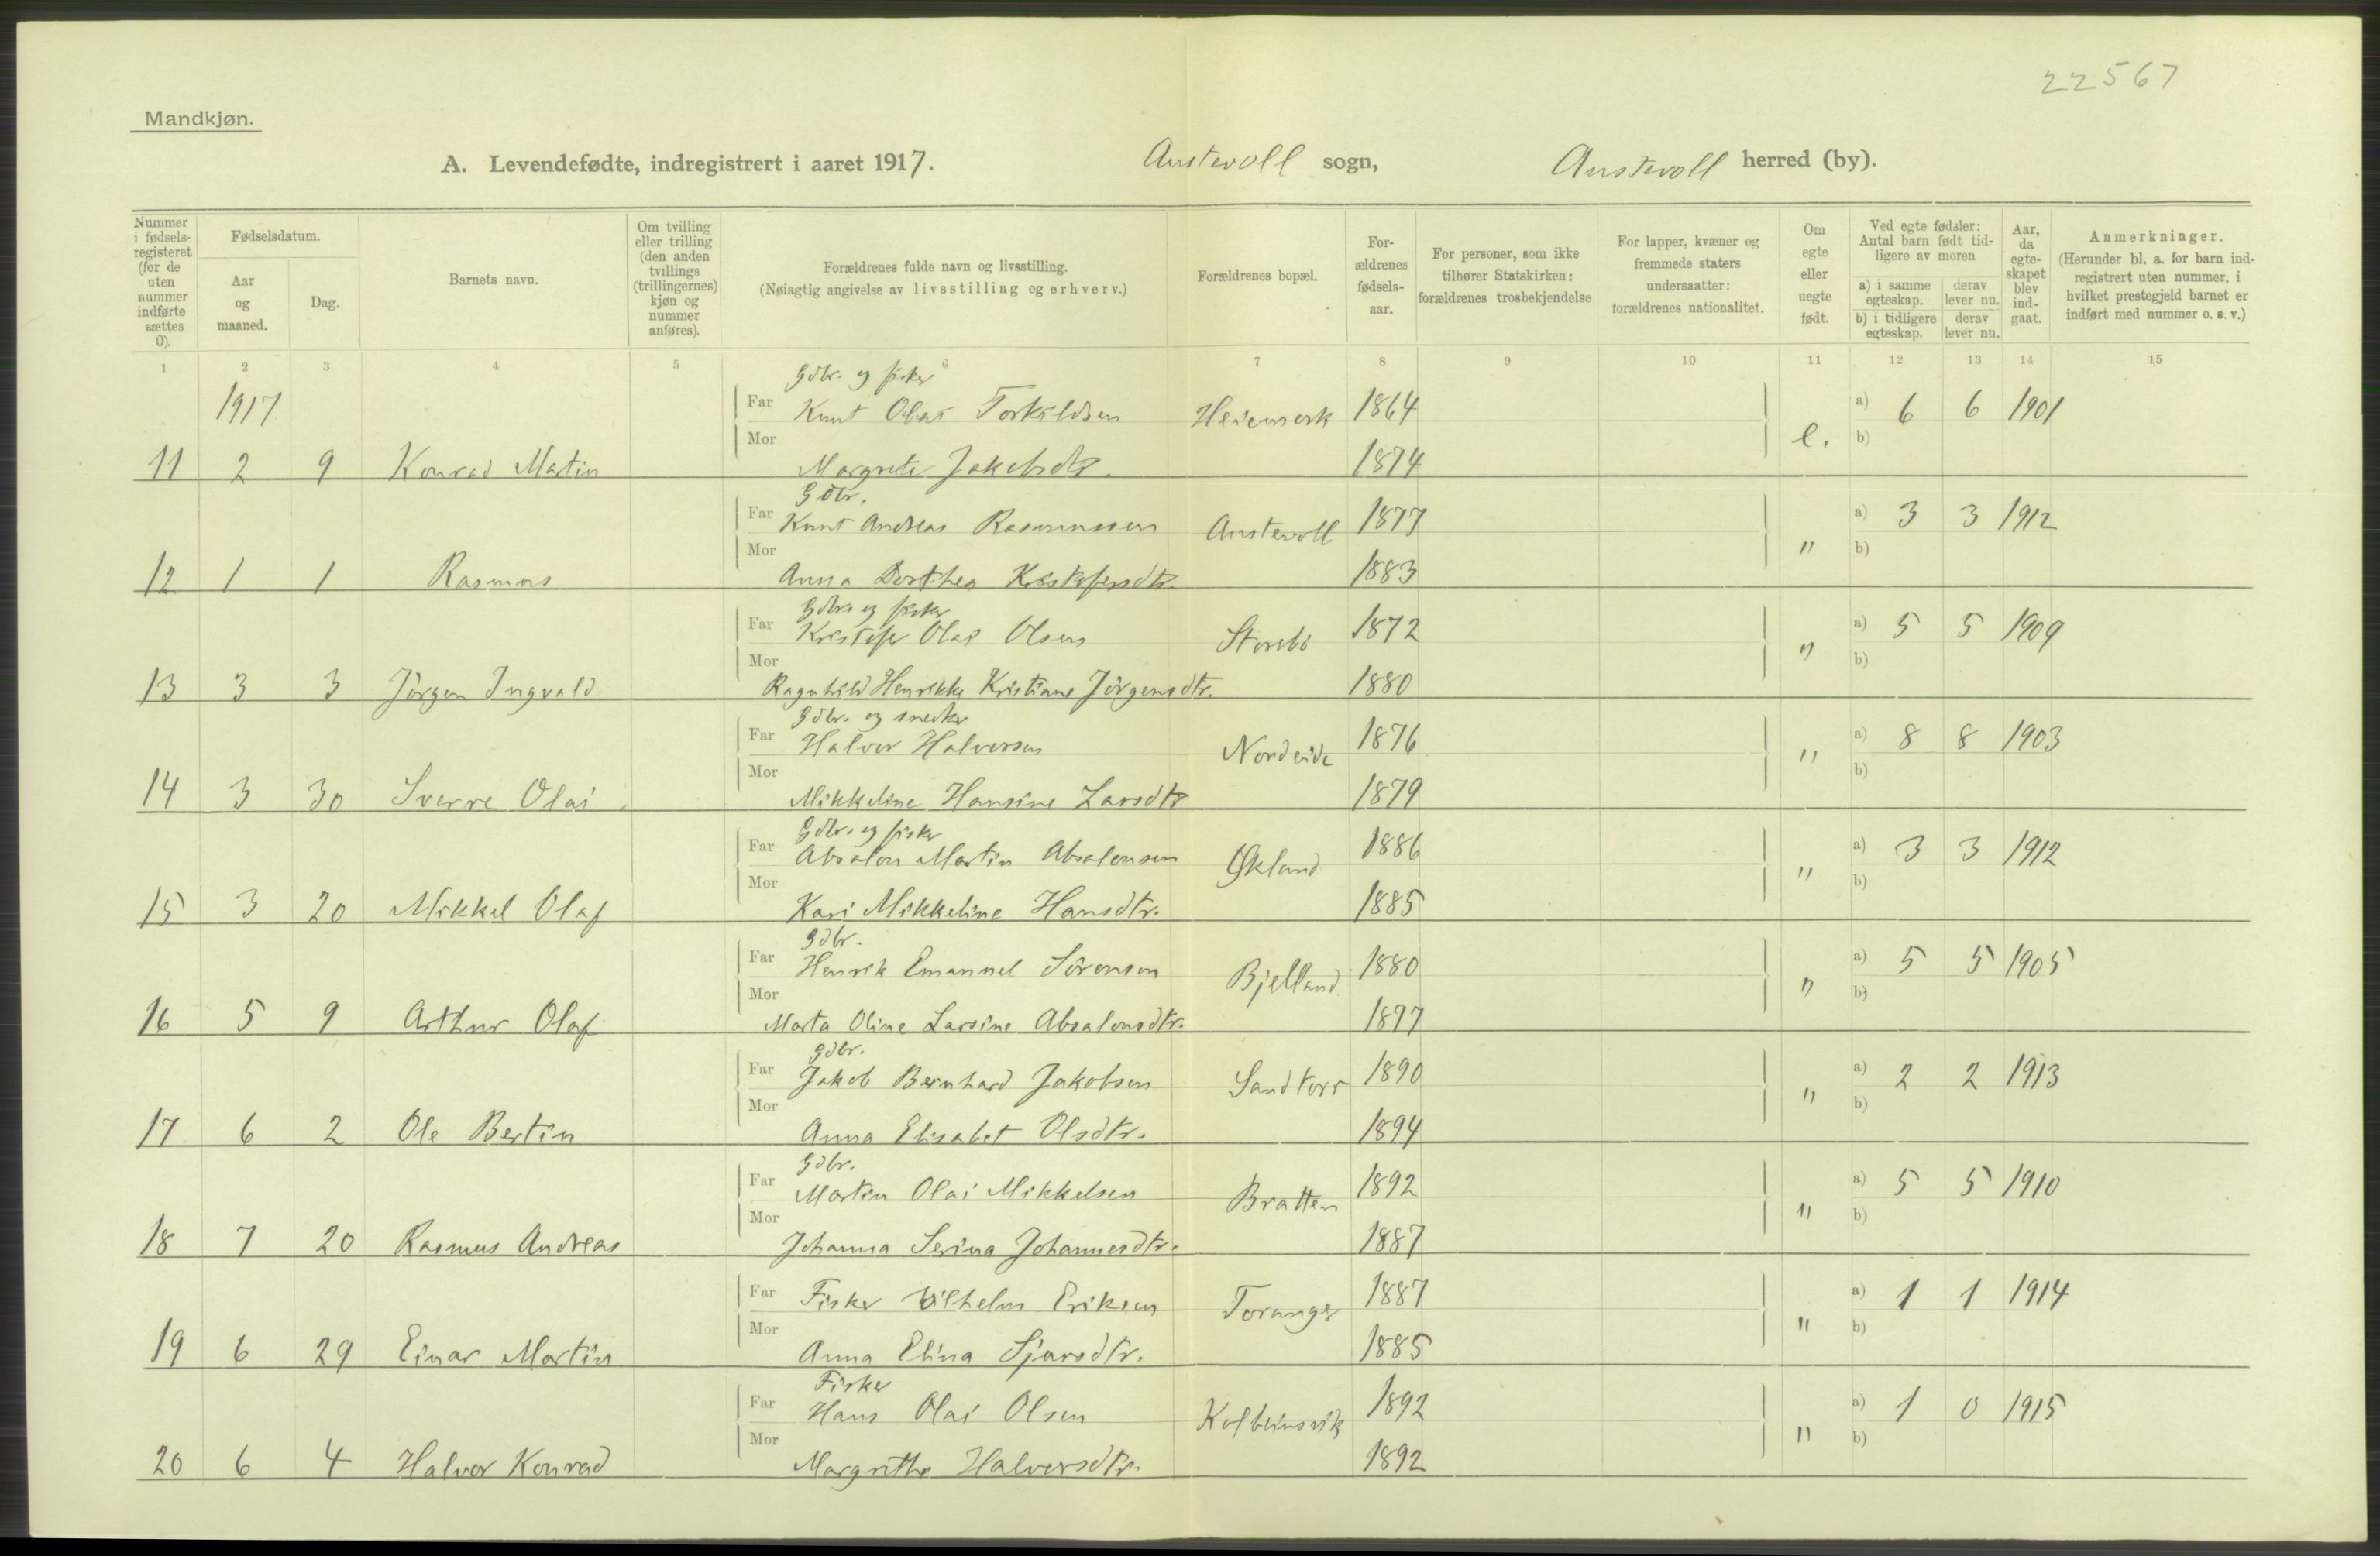 22567
Mandkjøn.
A. Levendefødte, indregistrert i aaret 1917. Austevoll sogn, Austevoll herred (by).
Nummer i fødsels-registeret (for de uten nummer indførte sættes 0).
Fødselsdatum.
Aar og maaned.
Dag.
Barnets navn.
Om tvilling eller trilling (den anden tvillings (trillingernes) kjøn og nummer anføres).
Forældrenes fulde navn og livsstilling.
(Nøiagtig angivelse av livsstilling og erhverv.)
Forældrenes bopæl.
For-ældrenes fødsels-aar.
For personer, som ikke tilhører Statskirken: forældrenes trosbekjendelse
For lapper, kvæner og fremmede staters undersaatter: forældrenes nationalitet.
Om egte eller uegte født.
Ved egte fødsler: Antal barn født tid-ligere av moren
a) i samme egteskap. derav lever nu.
b) i tidligere egteskap. derav lever nu.
Aar, da egte-skapet blev ind-gaat.
Anmerkninger.
(Herunder bl. a. for barn ind-registrert uten nummer, i hvilket prestegjeld barnet er indført med nummer o. s. v.)
1 2 3 4 5 6 7 8 9 10 11 12 13 14 15
Gdbr. og fisker
1917 Far Knut Olai Torkildsen Heiemark 1864 a) 6 6 1901
Mor e. b)
11 2 9 Konrad Martin Margrete Jakobsdtr. 1874
Gdbr.
Far Knut Andreas Rasmussen Austevoll 1877 a) 3 3 1912
Mor " b)
12 1 1 Rasmus Anna Dorthea Kristofersdtr. 1883
Gdbr. og fisker
Far Kristofer Olai Olsen Storebö 1872 a) 5 5 1909
Mor " b)
13 3 3 Jörgen Ingvald Ragnhild Henrikke Kristiane Jörgensdtr. 1880
Gdbr. og snedker
Far Halvor Halvorsen Nordeide 1876 a) 8 8 1903
Mor " b)
14 3 30 Sverre Olai Mikkeline Hansine Larsdtr 1879
Gdbr. og fisker
Far Absalon Martin Absalonsen Økland 1886 a) 3 3 1912
Mor " b)
15 3 20 Mikkel Olaf Kari Mikkeline Hansdtr. 1885
Gdbr.
Far Henrik Emanuel Sörensen Bjelland 1880 a) 5 5 1905
Mor " b)
16 5 9 Arthur Olaf Marta Oline Larsine Absalonsdtr. 1877
Gdbr.
Far Jakob Bernhard Jakobsen Sandtorv 1890 a) 2 2 1913
Mor " b)
17 6 2 Ole Bertin Anna Elisabet Olsdtr. 1894
Gdbr.
Far Martin Olai Mikkelsen Bratten 1892 a) 5 5 1910
Mor " b)
18 7 20 Rasmus Andreas Johanna Serina Johannesdtr. 1887
Far Fisker Vilhelm Eriksen Toranger 1887 a) 1 1 1914
Mor " b)
19 6 29 Einar Martin Anna Elina Sjursdtr. 1885
Fisker
Far Hans Olai Olsen Kolbeinsvik 1892 a) 1 0 1915
Mor " b)
20 6 4 Halvor Konrad Margrethe Halvorsdtr. 1892